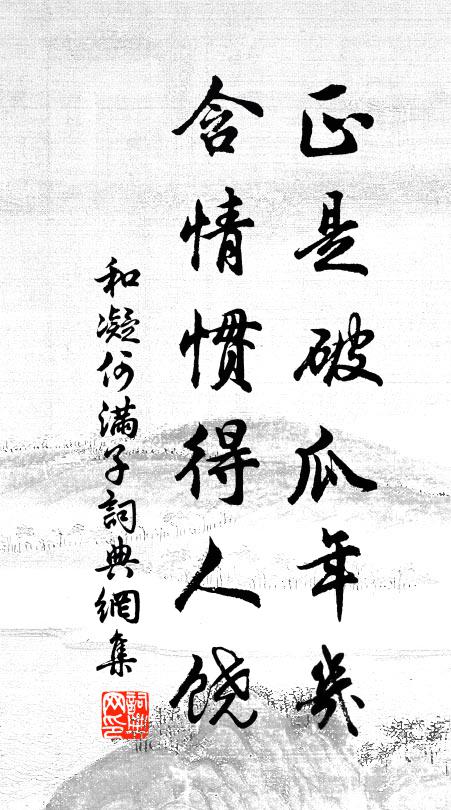 正是破瓜年幾
含情慣得人饒
和凝何滿子詞典網集